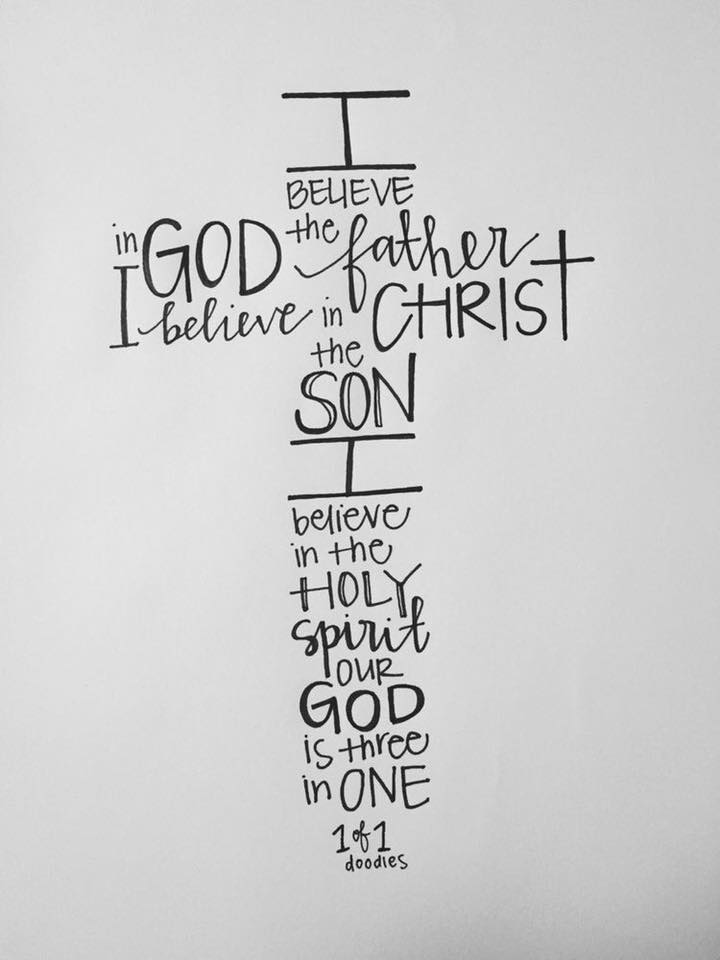 I
BELIEVE
in GOD the father
I believe in CHRIST
the
SON
I
believe
in the
HOLY
spirit
OUR
GOD
is three
in ONE
1 of 1
doodles